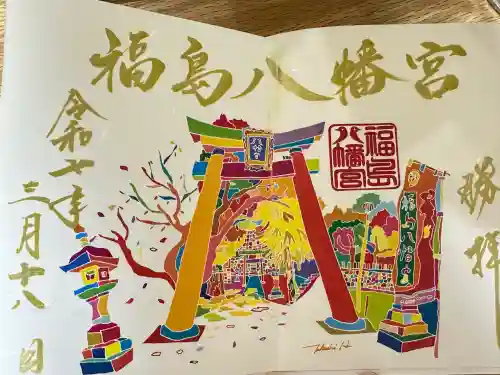 福島八幡宮
令和七年
三月十八日
八幡宮
福島
八幡宮
福島八幡宮